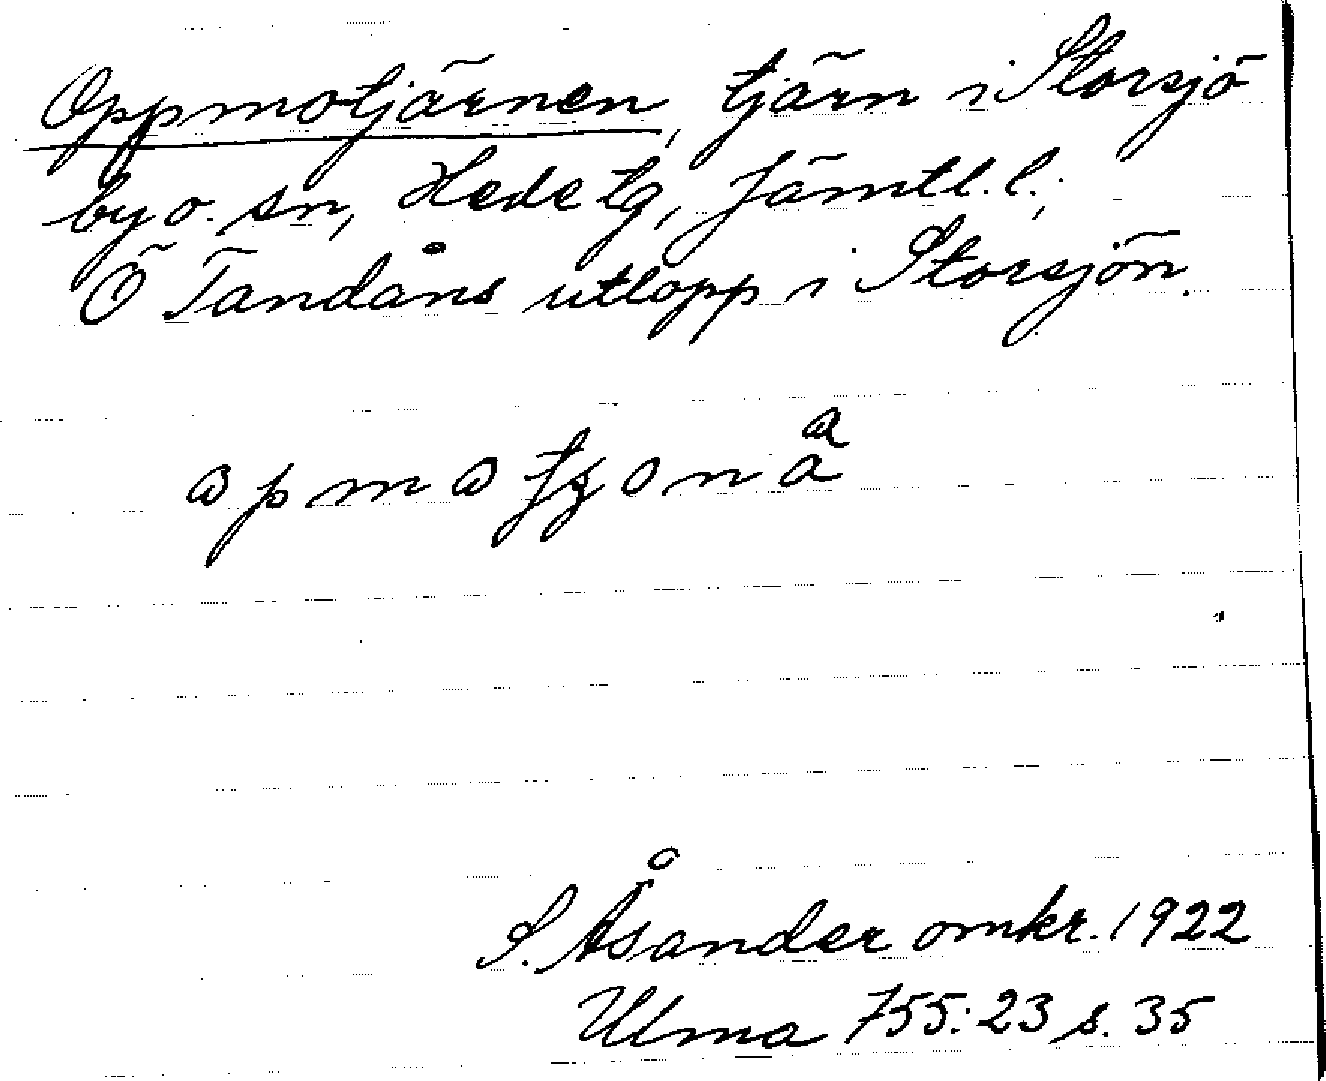 Oppmotjärnen, tjärn i Storsjö
by o. sn, Hede tg, Jämtl. l.;
Ö Tandåns utlopp i Storsjön.
S. Åsander omkr. 1922
Ulma 755:23 s. 35